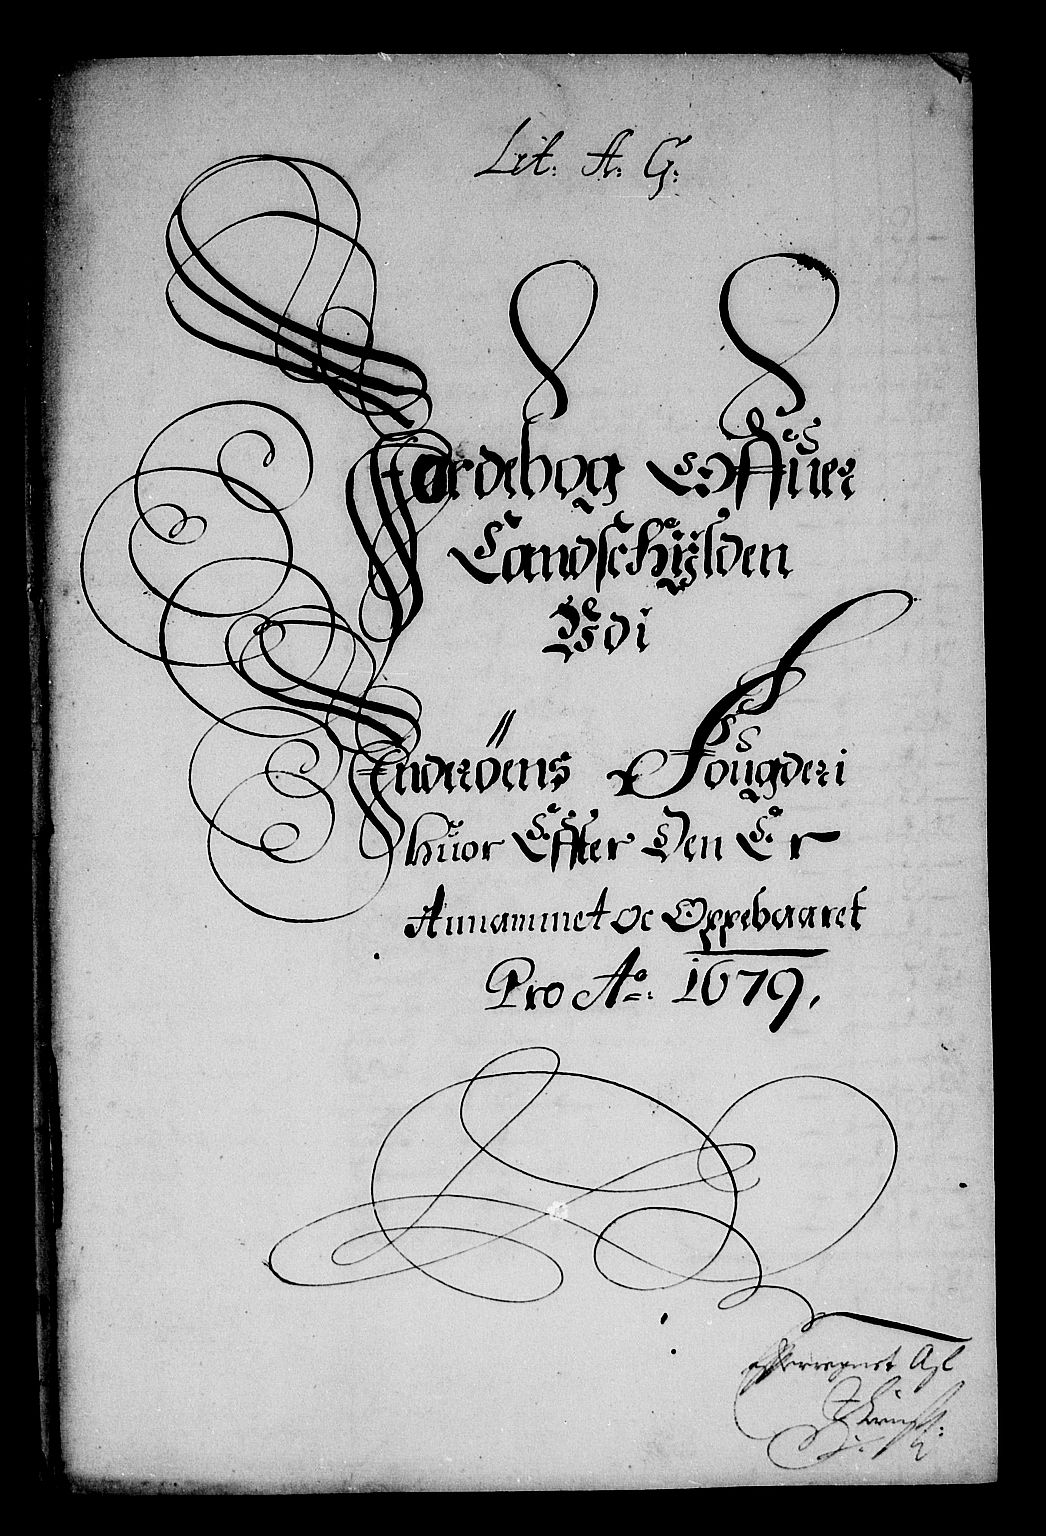 Lit: A: G:
Jordebog Offuer
Landschÿlden
Vdi
Inderöens Fougderi
huor Effter Den Er
Annammet oc Oppebaaret
Pro Ao: 1679,
efterregnet